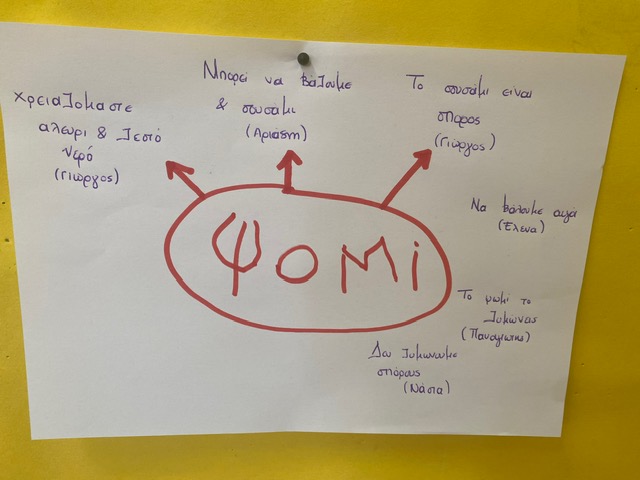 Χρειαζομαστε
αλευρι & Ζεστό
νερό
(Γιώργος)
Μπορεί να βάζουμε
& σουσάμι
(Αριάδνη)
Το σουσάμι ειναι
σπόρος
(Γιώργος)
ΨΟΜί
Να βάλουμε αυγά
(Έλενα)
Το ψωμί το
Ζυμώνεις
(Παναγιώτης)
Δεν Ζυμωνουμε
σπόρους
(Νάσια)